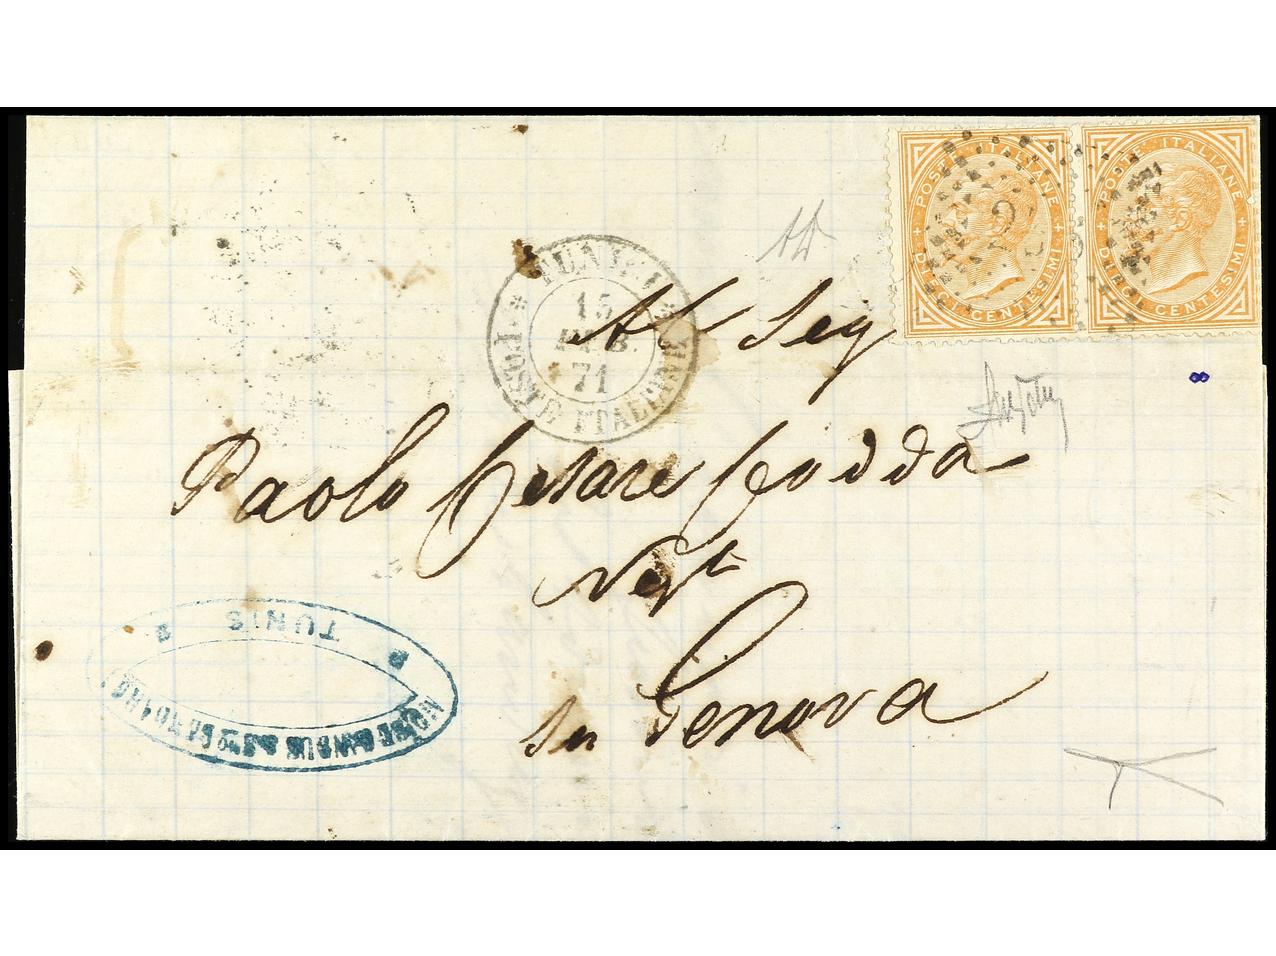 POSTE ITALIANE
DIECI CENTESIMI
POSTE ITALIANE
DIECI CENTESIMI
TUNISI
15
FEB.
71
POSTE ITALIANE
Al Sig
Paolo Cesare
Negt
in Genova
TUNIS